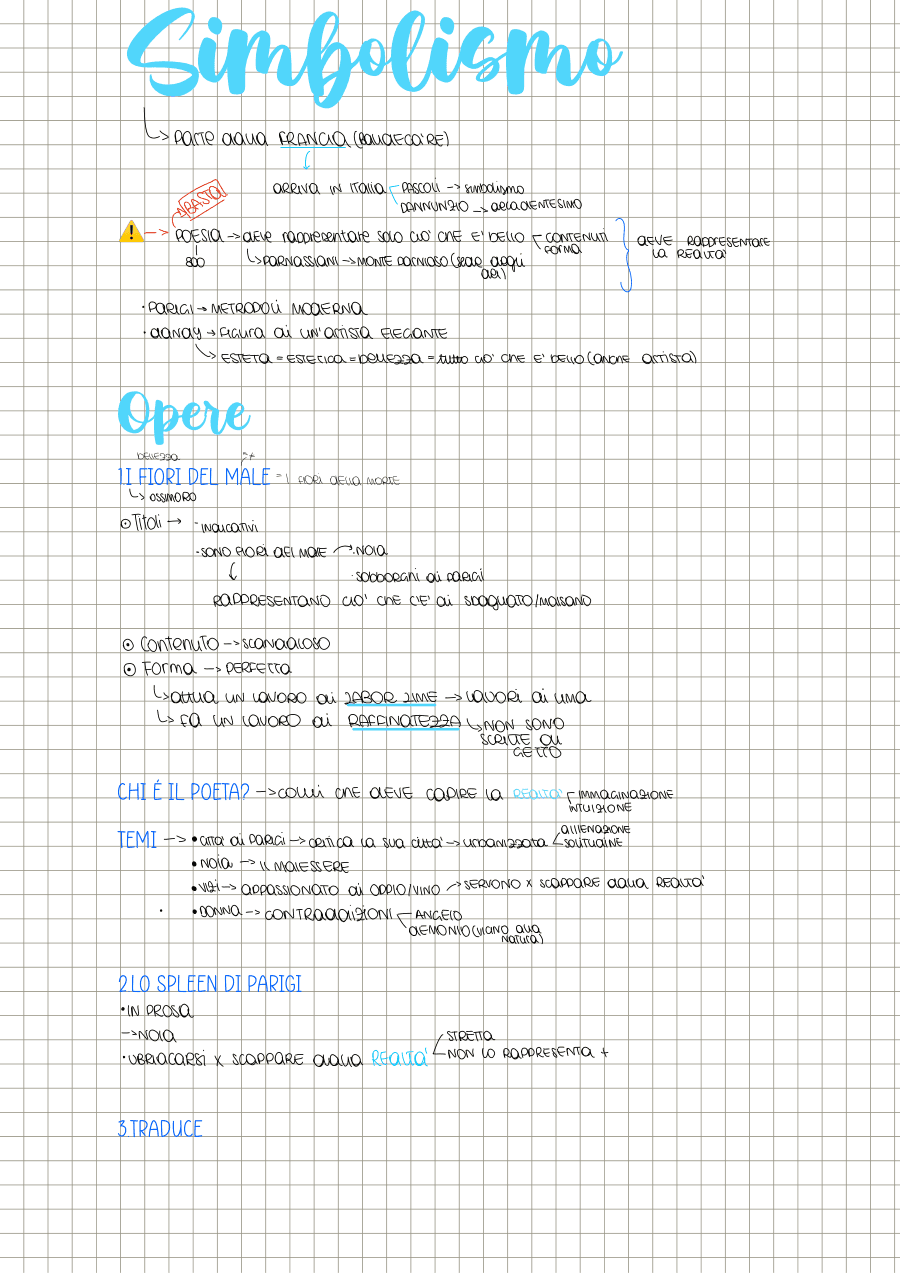 Simbolismo
↳ PARTE DALLA FRANCIA (BAUDELAIRE)
ARRIVA IN ITALIA PASCOLI -> simbolismo
DANNUNZIO -> DECADENTISMO
BASTA!
POESIA -> DEVE RAPPRESENTARE SOLO CIO' CHE E' BELLO CONTENUTI
FORMA
DEVE RAPPRESENTARE
LA REALTA'
800
↳ PARNASSIANI -> MONTE PARNASO (sede degli
dei)
• PARIGI -> METROPOLI MODERNA
• DANDY -> FIGURA DI UN'ARTISTA ELEGANTE
↳ ESTETA = ESTETICA = BELLEZZA = tutto CIO' CHE E' BELLO (ANCHE ARTISTA)
Opere
BELLEZZA
1.I FIORI DEL MALE = I FIORI DELLA MORTE
↳ OSSIMORO
⊙ Titoli -> • INDICATIVI
• SONO FIORI DEL MALE • NOIA
• SOBBORGHI DI PARIGI
RAPPRESENTANO CIO' CHE C'E' DI SBAGLIATO/MALSANO
⊙ Contenuto -> SCANDALOSO
⊙ Forma -> PERFETTA
↳ ATTUA UN LAVORO DI LABOR LIME -> LAVORI DI LIMA
↳ FA UN LAVORO DI RAFFINATEZZA ↳ NON SONO
SCRITTE DI
GETTO
CHI É IL POETA? -> COLUI CHE DEVE CAPIRE LA REALTA' IMMAGINAZIONE
INTUIZIONE
ALIENAZIONE
TEMI -> • CITTA' DI PARIGI -> CRITICA LA SUA CITTA' -> URBANIZZATA SOLITUDINE
• NOIA -> IL MALESSERE
• VIZI -> APPASSIONATO DI OPPIO/VINO -> SERVONO X SCAPPARE DALLA REALTA'
• DONNA -> CONTRADDIZIONI ANGELO
DEMONIO (VIANO alla
natura)
2.LO SPLEEN DI PARIGI
• IN PROSA
-> NOIA
STRETTA
• UBRIACARSI X SCAPPARE DALLA REALTA' NON LO RAPPRESENTA +
3.TRADUCE